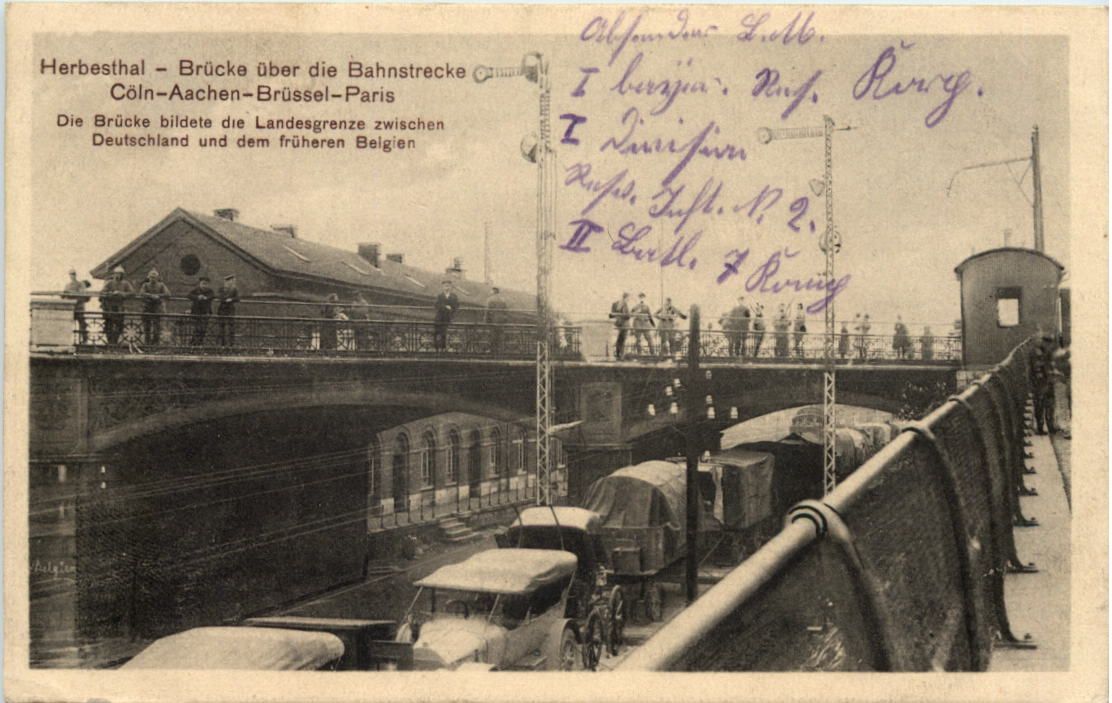 Herbesthal – Brücke über die Bahnstrecke
Cöln-Aachen-Brüssel-Paris
Die Brücke bildete die Landesgrenze zwischen
Deutschland und dem früheren Belgien
Absender
I bayr. Res. Korg.
I Division
Resv. Inft. N. 2.
II Batl. 7 Komp